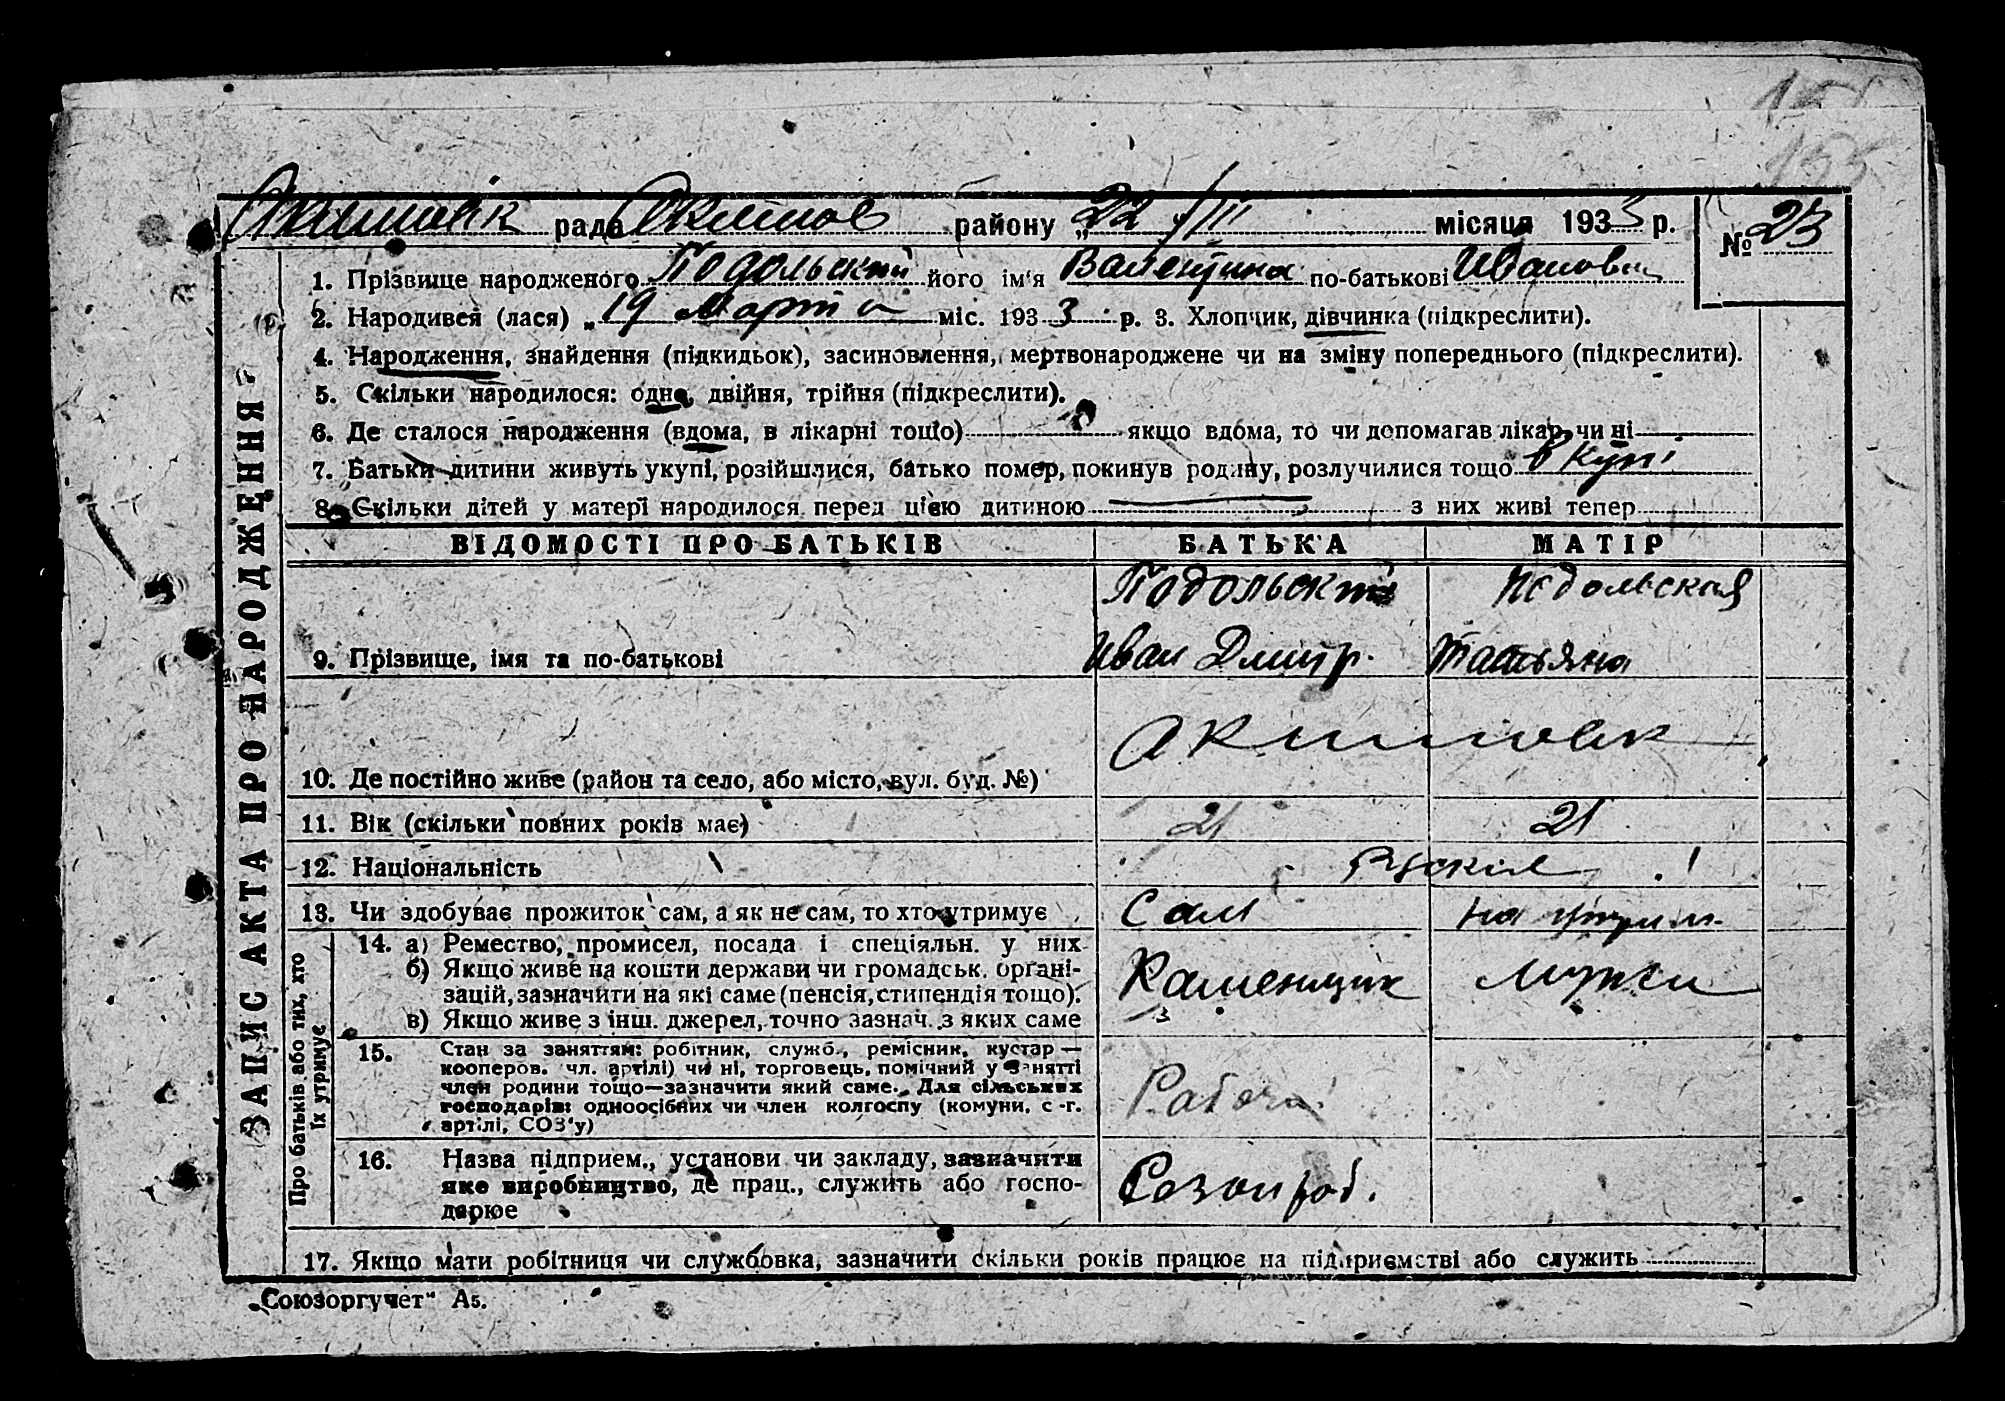 155
Акимовск рада Акимов району „22 / III місяця 1933 р. № 23
ЗАПИС АКТА ПРО НАРОДЖЕННЯ
1. Прізвище народженого Подольский його ім'я Валентина по-батькові Ивановн
2. Народився (лася) „19 марта міс. 1933 р. 3. Хлопчик, дівчинка (підкреслити).
4. Народження, знайдення (підкидьок), засиновлення, мертвонароджене чи на зміну попереднього (підкреслити).
5. Скільки народилося: одне, двійня, трійня (підкреслити).
6. Де сталося народження (вдома, в лікарні тощо) якщо вдома, то чи допомагав лікар чи ні
7. Батьки дитини живуть укупі, розійшлися, батько помер, покинув родину, розлучилися тощо вкупі
8. Скільки дітей у матері народилося перед цією дитиною — з них живі тепер
ВІДОМОСТІ ПРО БАТЬКІВ БАТЬКА МАТІР
Подольский Подольская
9. Прізвище, імя та по-батькові Иван Дмитр. Татьяна
Акимовк
10. Де постійно живе (район та село, або місто, вул. буд. №)
11. Вік (скільки повних років має) 21 21
12. Національність Рускіе
13. Чи здобуває прожиток сам, а як не сам, то хто утримує Сам на утрим.
Про батьків або тих, хто їх утримує
14. а) Ремество, промисел, посада і спеціяльн. у них
б) Якщо живе на кошти держави чи громадськ. органі-
зацій, зазначити на які саме (пенсія, стипендія тощо). Каменщик мужа
в) Якщо живе з інш. джерел, точно зазнач. з яких саме
15. Стан за заняттям: робітник, служб., ремісник, кустар —
кооперов. чл. артілі) чи ні, торговець, помічний у занятті
член родини тощо—зазначити який саме. Для сільських
господарів: одноосібних чи член колгоспу (комуни, с-г. Рабочи
артілі, СОЗ'у)
16. Назва підприєм., установи чи закладу, зазначити
яке виробництво, де прац., служить або госпо- Сезон раб.
дарює
17. Якщо мати робітниця чи службовка, зазначити скільки років працює на підприємстві або служить
„Союзоргучет" А5.